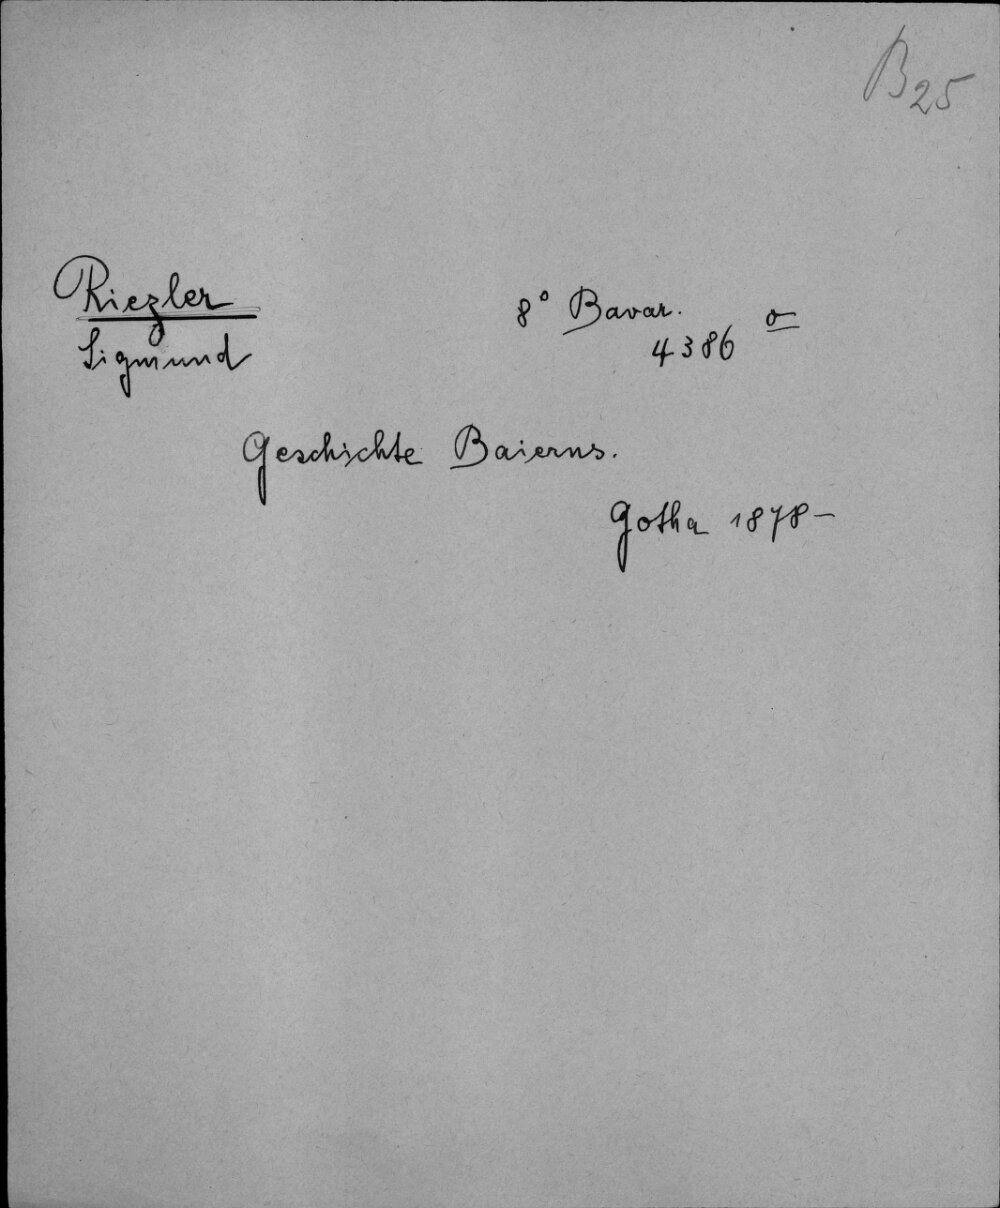 B25
Riezler
Sigmund
8° Bavar.
4386 o
Geschichte Baierns.
Gotha 1878–